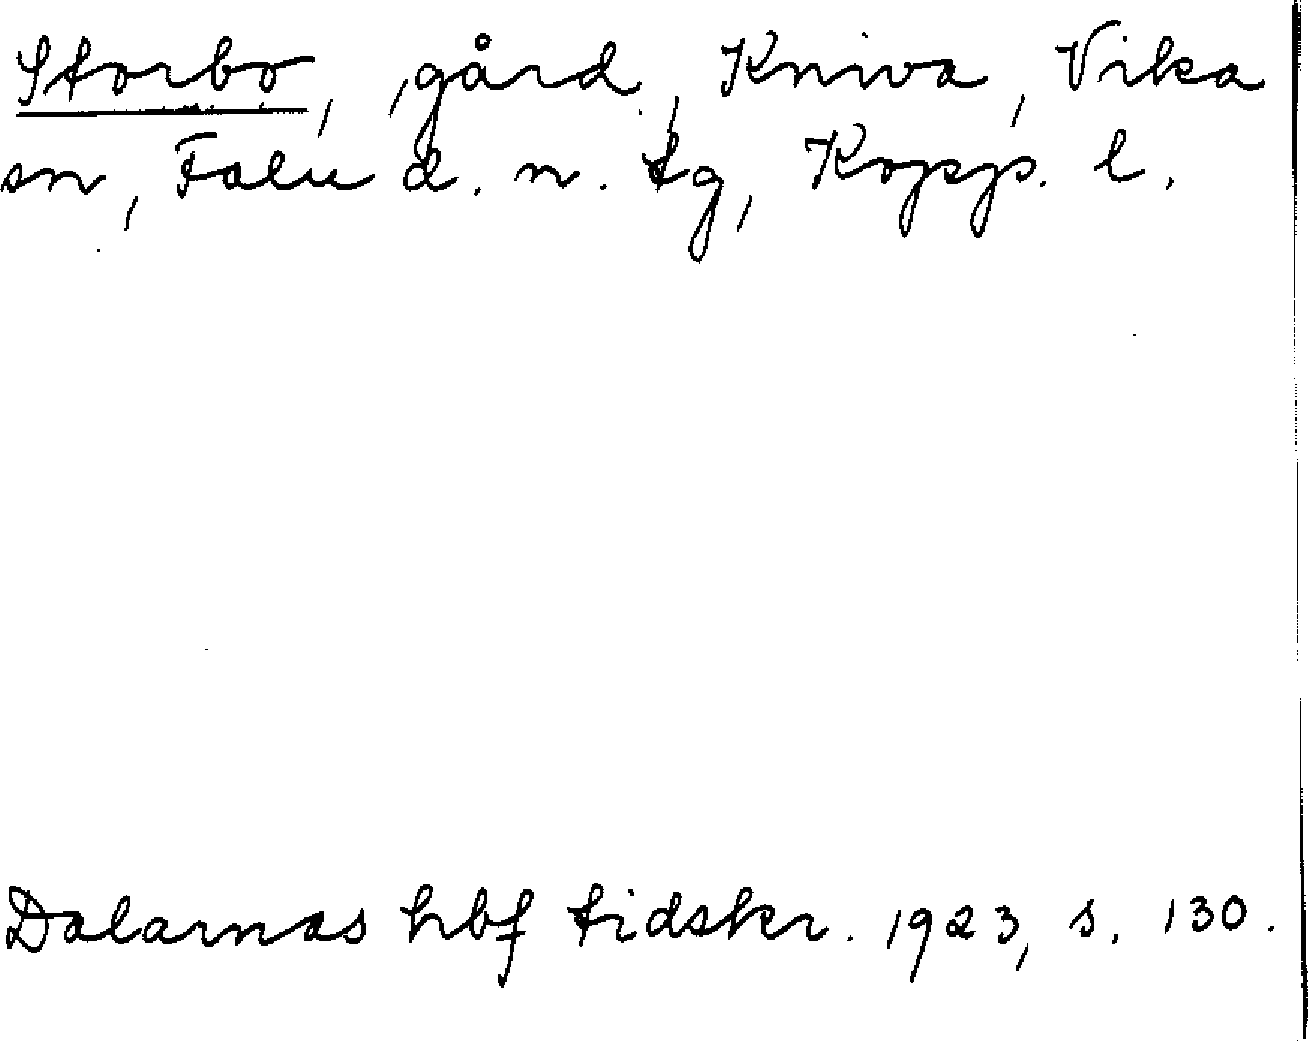 Storbo, gård, Kniva, Vika
sn, Falu d. n. tg, Kopp. l.
Dalarnas hbf tidskr. 1923, s. 130.